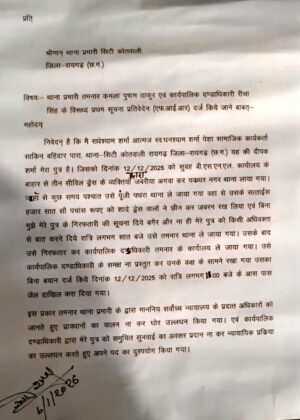 प्रति
श्रीमान् थाना प्रभारी सिटी कोतवाली
जिला–रायगढ़ (छ.ग.)
विषयः– थाना प्रभारी तमनार कमला पुषाम ठाकुर एवं कार्यपालिक दण्डाधिकारी रीचा
सिंह के विरूध्द प्रथम सूचना प्रतिवेदन (एफ.आई.आर) दर्ज किये जाने बाबत्–
महोदय्
निवेदन है कि मै राधेश्याम शर्मा आत्मज स्व.घनश्याम शर्मा पेशा सामाजिक कार्यकर्ता
साकिन बहिदार पारा, थाना–सिटी कोतवाली रायगढ़ जिला–रायगढ़ (छ.ग.) यह की दीपक
शर्मा मेरा पुत्र है। जिसको दिनांक 12/12/2025 को सुबह बी.एस.एन.एल. कार्यालय के
बाहर से तीन सीविल ड्रेस के व्यक्तियों जबरीया अगवा कर चक्रधर नगर थाना लाया गया।
जहाँ से कुछ समय पश्चात उसे पूँजी पथरा थाना ले जाया गया वहा से उसके सत्ताईस
हजार सात सौ पचांस रूपए को शादे ड्रेस वालों ने छीन कर जबरन रख लिया एवं बिना
मुझे मेरे पुत्र के गिरफ्तारी की सूचना दिये बगैर और ना ही मेरे पुत्र को किसी अधिवक्ता
से बात करने दिये रात्रि लगभग सात बजे उसे तमनार थाना ले जाया गया। उसके बाद
उसे गिरफ्तार कर कार्यपालिक दण्डाधिकारी तमनार के कार्यालय ले जाया गया। उसे
कार्यपालिक दण्डाधिकारी के समक्ष ना प्रस्तुत कर उनके कक्ष के सामने रखा गया उसका
बिना बयान दर्ज किये दिनांक 12/12/2025 को रात्रि लगभग :00 बजे के आस पास
जेल दाखिल करा दिया गया।
इस प्रकार तमनार थाना प्रभारी के द्वारा माननिय सर्वोच्य न्यायालय के प्रदात्त अधिकारो को
जानते हुए प्राव्धानो का पालन ना कर घोर उल्लघन किया गया। एवं कार्यपालिक
दण्डाधिकारी द्वारा मेरे पुत्र को समुचित सुनवाई का अवसर प्रदान ना कर न्यायायिक प्रक्रिया
का उल्लघन करते हुए अपने पद का दुरूपयोग किया गया।
6/1/2026